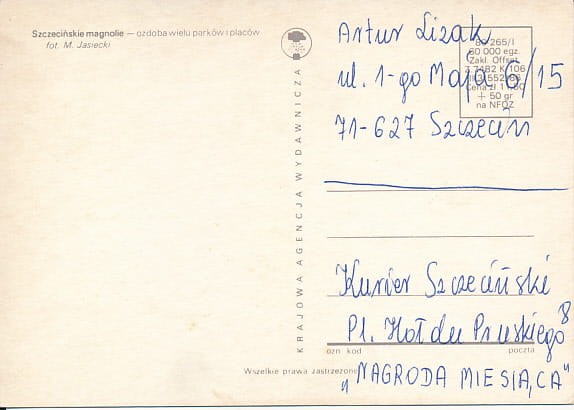 Szczecińskie magnolie — ozdoba wielu parków i placów
fot. M. Jasiecki
KRAJOWA AGENCJA WYDAWNICZA
Artur Lizak
ul. 1-go Maja 6/15
71-627 Szczecin
60 000 egz.
Zakł. Offset.
+ 50 gr
na NFOZ
Kurier Szczeciński
Pl. Hołdu Pruskiego 8
ozn kod poczta
Wszelkie prawa zastrzeżone
„NAGRODA MIESIĄCA"